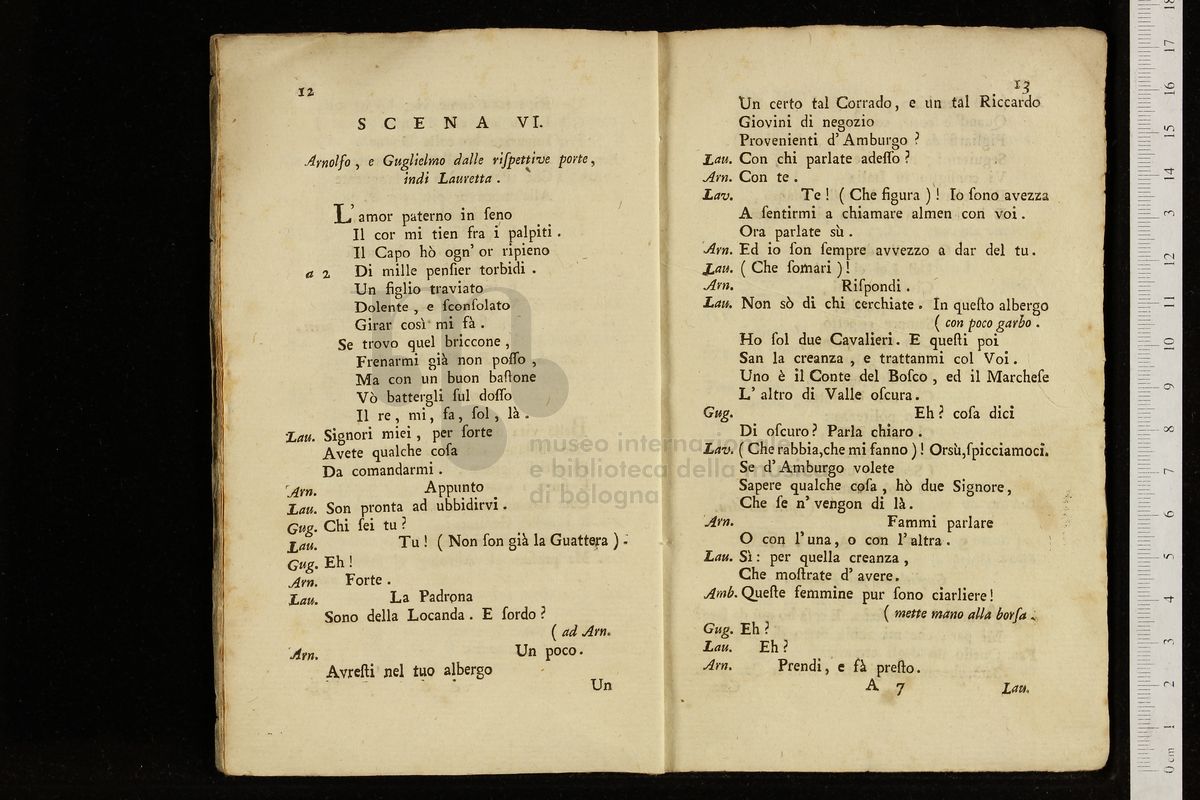 12
SCENA VI.
Arnolfo, e Guglielmo dalle riſpettive porte,
indi Lauretta.
L'amor paterno in ſeno
Il cor mi tien fra i palpiti.
Il Capo hò ogn' or ripieno
a 2 Di mille penſier torbidi.
Un figlio traviato
Dolente, e ſconſolato
Girar così mi fà.
Se trovo quel briccone,
Frenarmi già non poſſo,
Ma con un buon baſtone
Vò battergli ſul doſſo
Il re, mi, fa, ſol, là.
Lau. Signori miei, per ſorte
Avete qualche coſa
Da comandarmi.
Arn. Appunto
Lau. Son pronta ad ubbidirvi.
Gug. Chi ſei tu?
Lau. Tu! (Non ſon già la Guattera).
Gug. Eh!
Arn. Forte.
Lau. La Padrona
Sono della Locanda. E ſordo?
(ad Arn.
Arn. Un poco.
Avreſti nel tuo albergo
Un
13
Un certo tal Corrado, e un tal Riccardo
Giovini di negozio
Provenienti d'Amburgo?
Lau. Con chi parlate adeſſo?
Arn. Con te.
Lav. Te! (Che figura)! Io ſono avezza
A ſentirmi a chiamare almen con voi.
Ora parlate sù.
Arn. Ed io ſon ſempre avvezzo a dar del tu.
Lau. (Che ſomari)!
Arn. Riſpondi.
Lau. Non sò di chi cerchiate. In queſto albergo
(con poco garbo.
Ho ſol due Cavalieri. E queſti poi
San la creanza, e trattanmi col Voi.
Uno è il Conte del Boſco, ed il Marcheſe
L'altro di Valle oſcura.
Gug. Eh? coſa dici
Di oſcuro? Parla chiaro.
Lav. (Che rabbia, che mi fanno)! Orsù, ſpicciamoci.
Se d'Amburgo volete
Sapere qualche coſa, hò due Signore,
Che ſe n'vengon di là.
Arn. Fammi parlare
O con l'una, o con l'altra.
Lau. Sì: per quella creanza,
Che moſtrate d'avere.
Amb. Queſte femmine pur ſono ciarliere!
(mette mano alla borſa.
Gug. Eh?
Lau. Eh?
Arn. Prendi, e fà preſto.
A 7 Lau.
museo internazionale
e biblioteca della musica
di bologna
0 cm 1 2 3 4 5 6 7 8 9 10 11 12 13 14 15 16 17 18